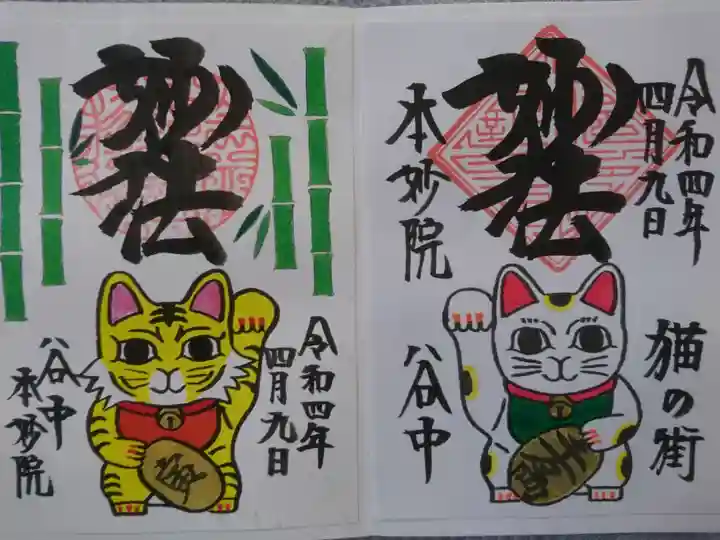 令和四年
四月九日
妙法
本妙院
猫の街
谷中
妙法
令和四年
四月九日
谷中
本妙院